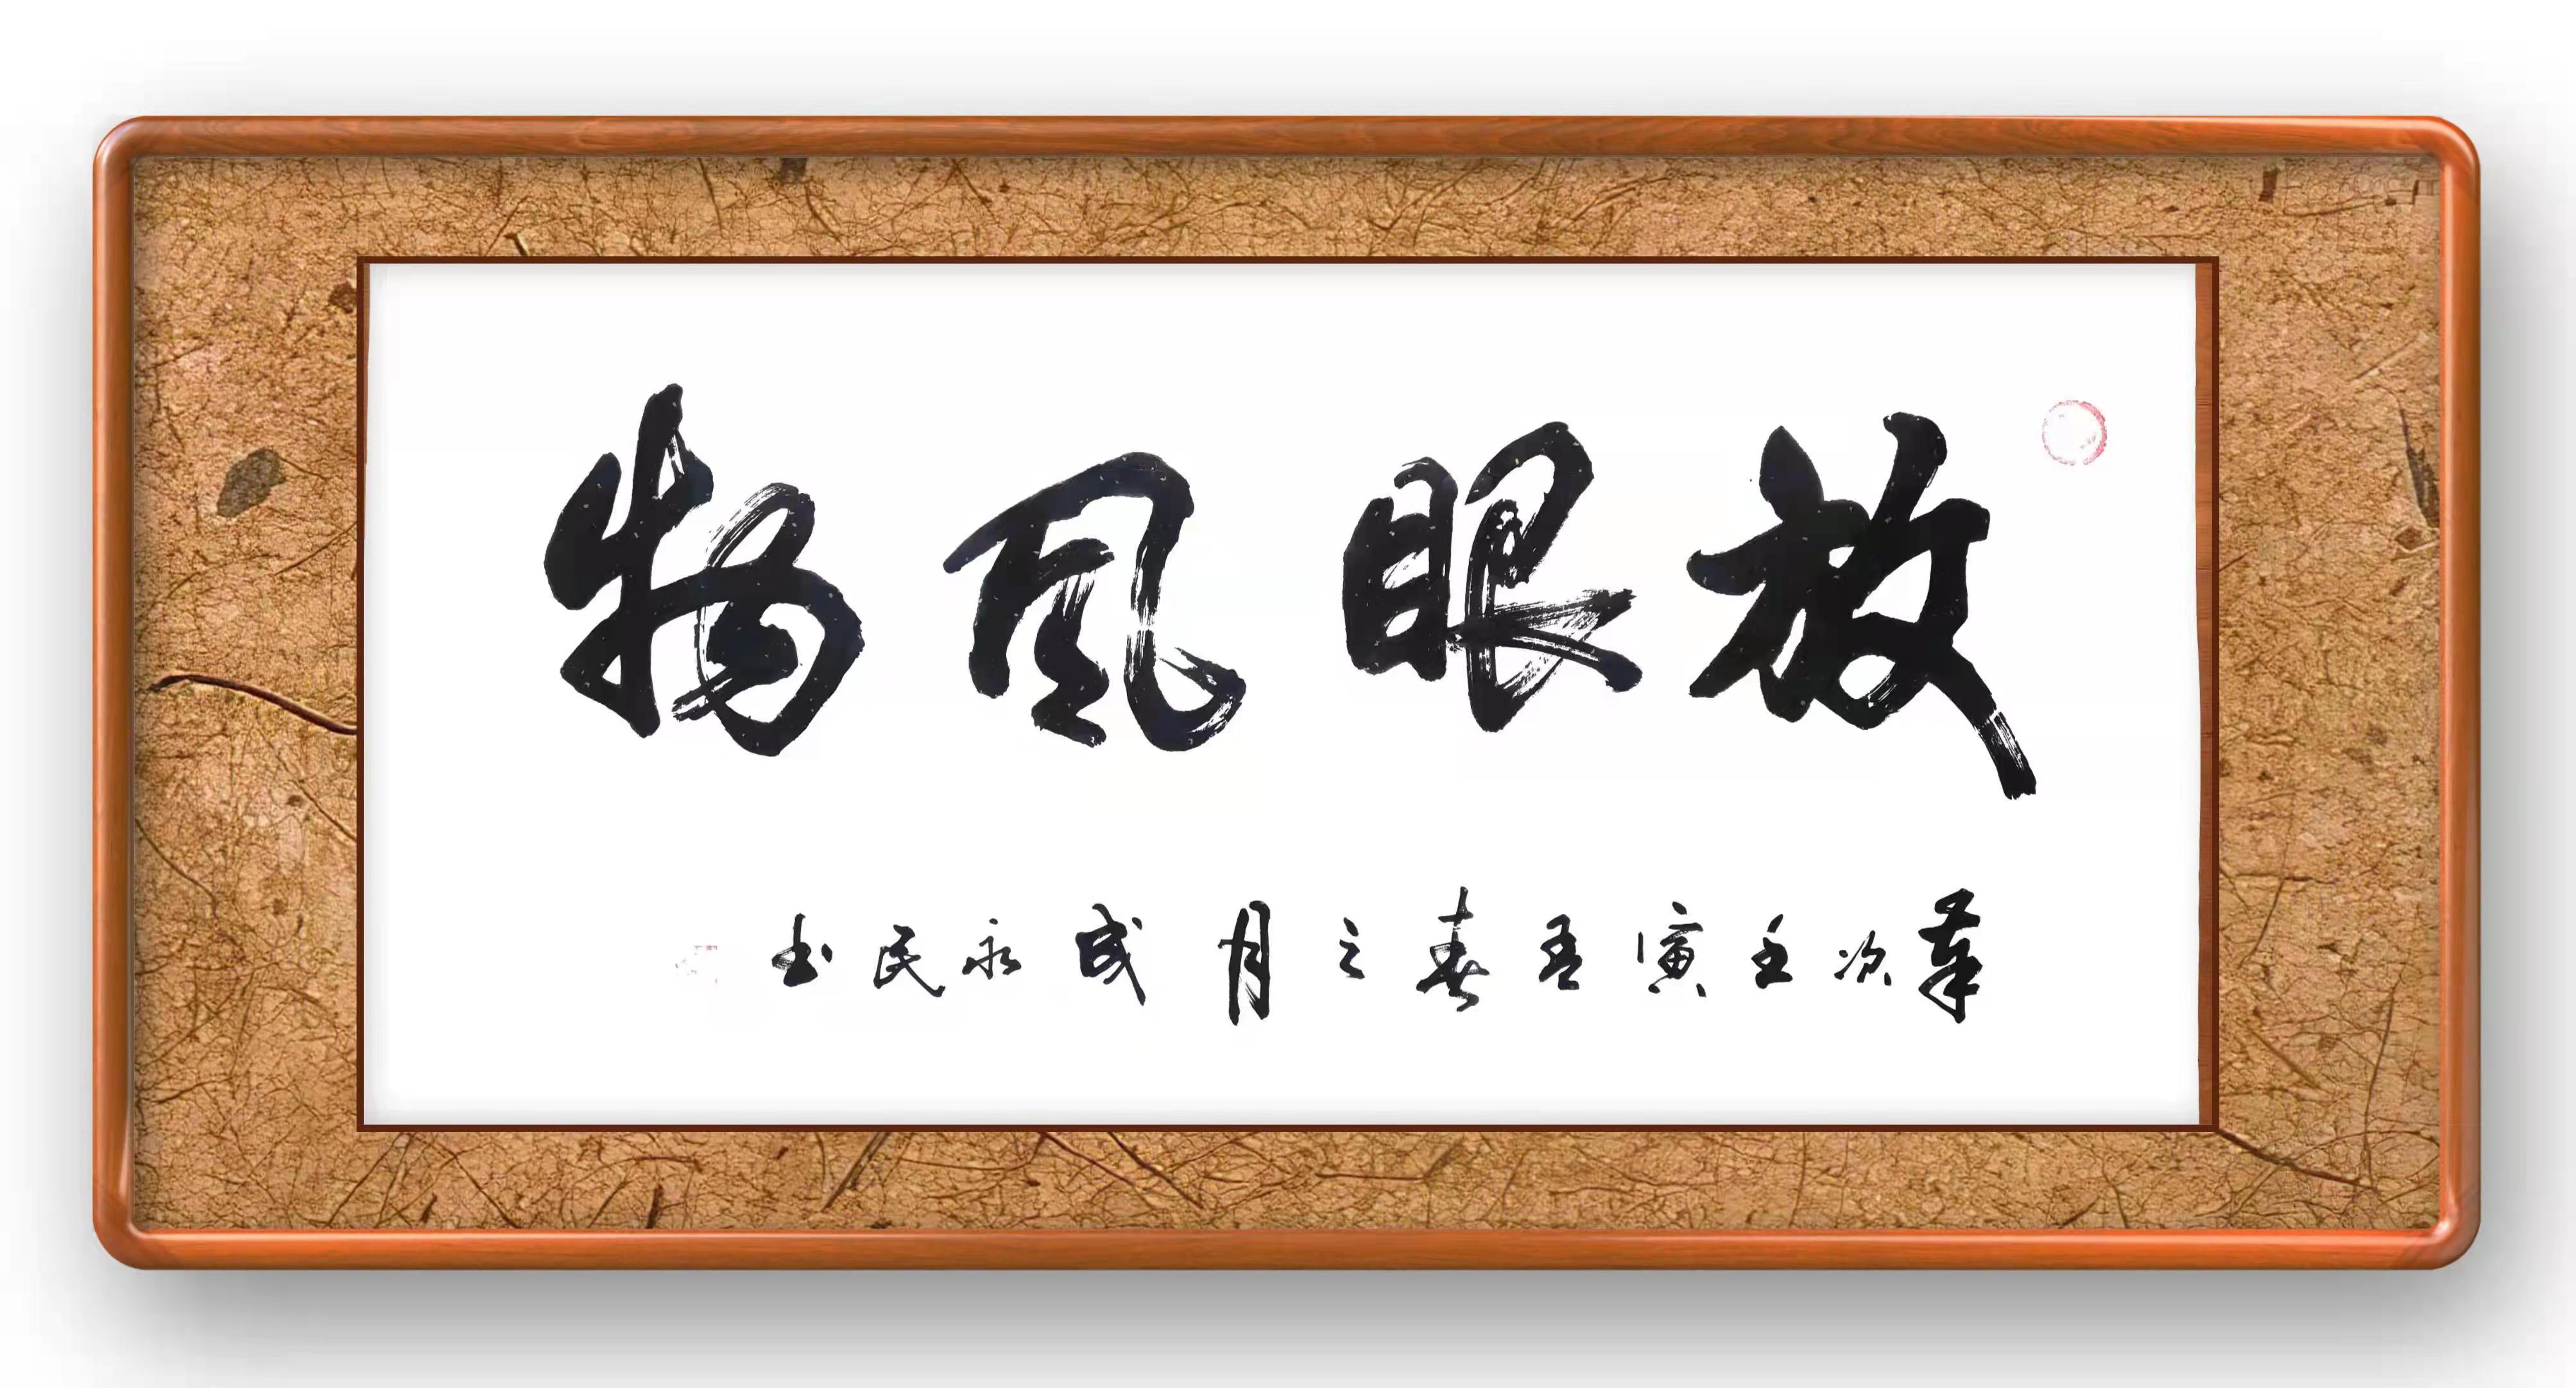 放眼风物
岁次壬寅孟春之月成永民书